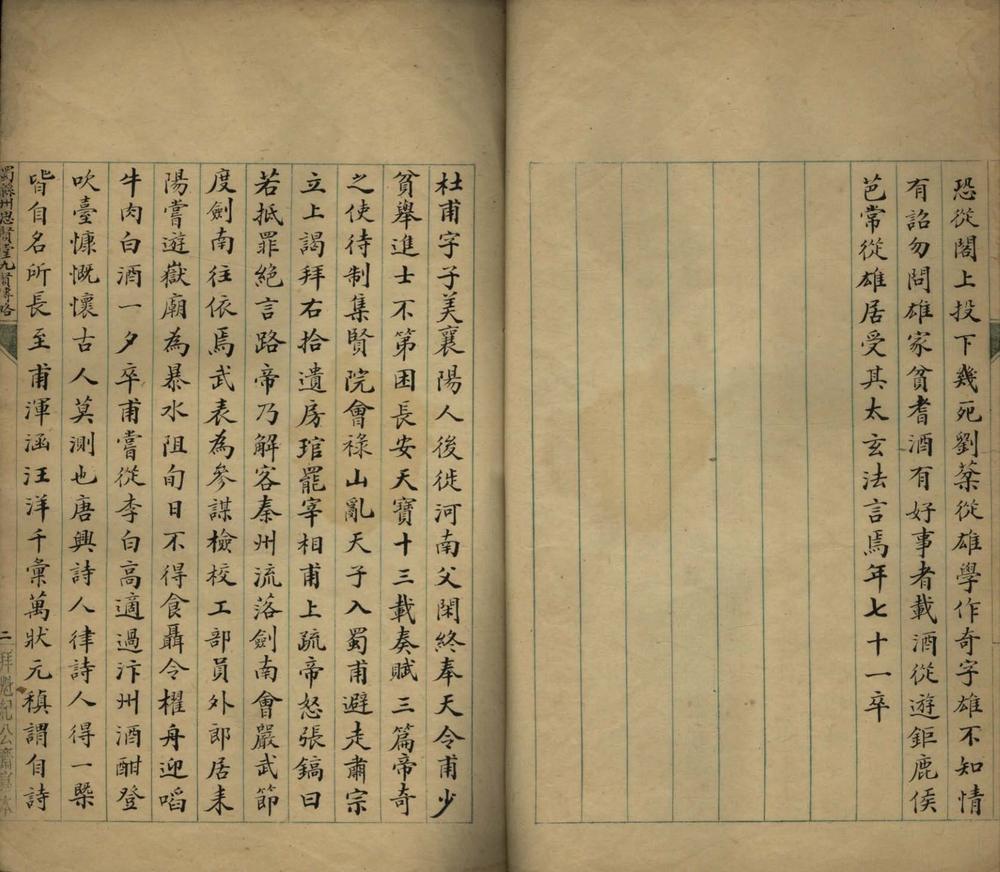 恐從閣上投下幾死劉棻從雄學作奇字雄不知情
有詔勿問雄家貧耆酒有好事者載酒從遊鉅鹿侯
芭常從雄居受其太玄法言焉年七十一卒
杜甫字子美襄陽人後徙河南父閑終奉天令甫少
貧舉進士不第困長安天寶十三載奏賦三篇帝奇
之使待制集賢院會祿山亂天子入蜀甫避走肅宗
立上謁拜右拾遺房琯罷宰相甫上疏帝怒張鎬曰
若抵罪絕言路帝乃解客秦州流落劍南會嚴武節
度劍南往依焉武表為參謀檢校工部員外郎居耒
陽嘗遊嶽廟為暴水阻旬日不得食聶令櫂舟迎啗
牛肉白酒一夕卒甫嘗從李白高適過汴州酒酣登
吹臺慷慨懷古人莫測也唐興詩人律詩人得一槩
皆自名所長至甫渾涵汪洋千彙萬狀元稹謂自詩
蜀緜州思賢堂九賢傳略
二
拜魁紀公齋寫本